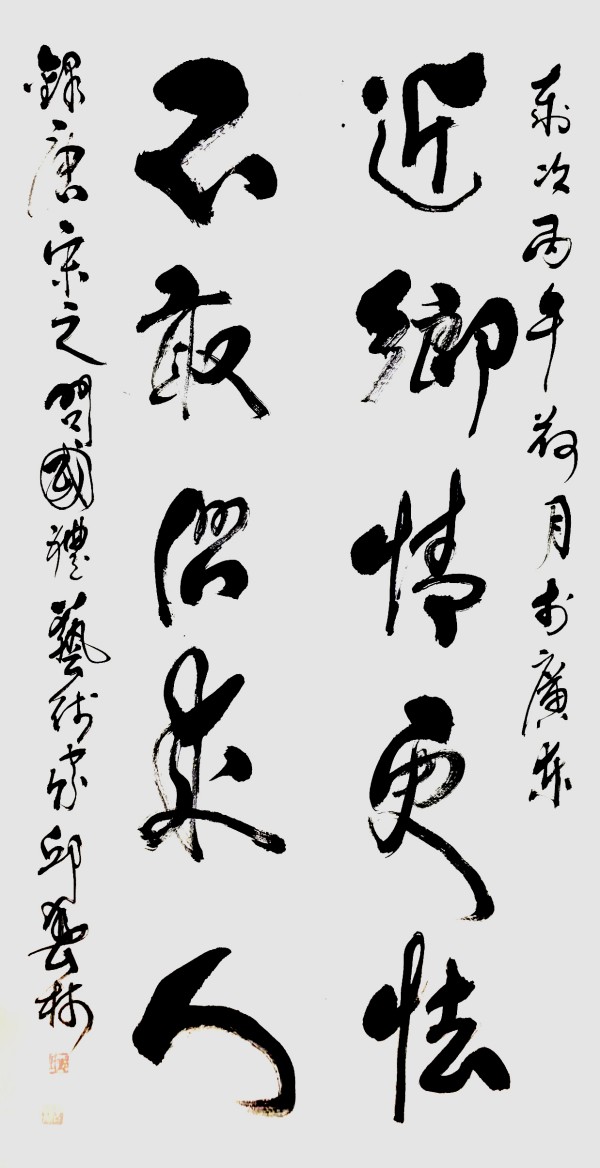 歲次丙午荷月於廣東
近鄉情更怯
不敢問來人
錄唐宋之問國禮藝術家邱雲林